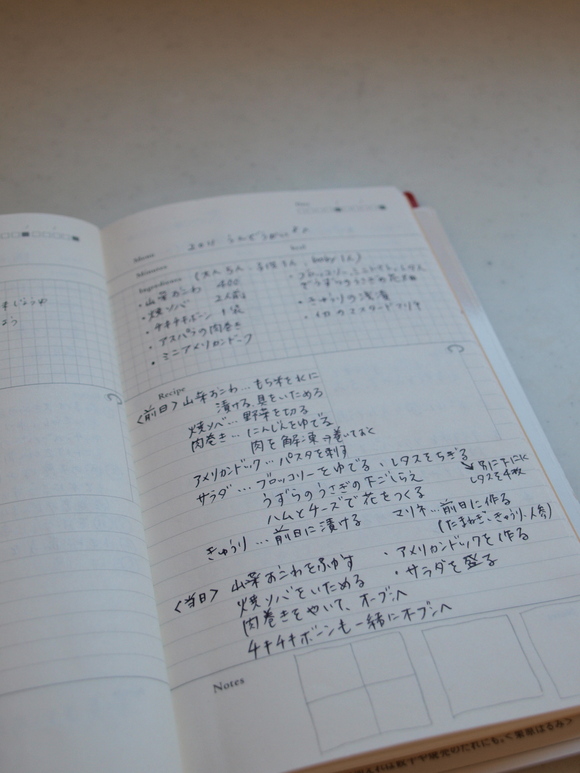 Menu
Minutes
Ingredients (大人5人、子供5人、baby1人)
・山菜おこわ 400
・焼ソバ 2人前
・チキチキボーン 1袋
・アスパラの肉巻き
・ミニアメリカンドーグ
・ブロッコリー、レタス
でうずらのうさぎの花畑
・きゅうりの浅漬
Recipe
〈前日〉山菜おこわ…もち米を水に
漬ける、具をいためる
焼ソバ…野菜を切る
肉巻き…にんじんをゆでる
肉を解凍→巻いておく
アメリカンドック…パスタを刺す
サラダ…ブロッコリーをゆでる・レタスをちぎる
↘別に下にしく
レタスを4枚
うずらのうさぎの下ごしらえ
ハムとチーズで花をつくる
きゅうり…前日に漬ける
マリネ…前日に作る
(たまねぎ、きゅうり、人参)
〈当日〉山菜おこわをふかす
・アメリカンドックを作る
焼ソバをいためる
・サラダを盛る
肉巻きをやいて、オーブンへ
チキチキボーンも一緒にオーブンへ
Notes